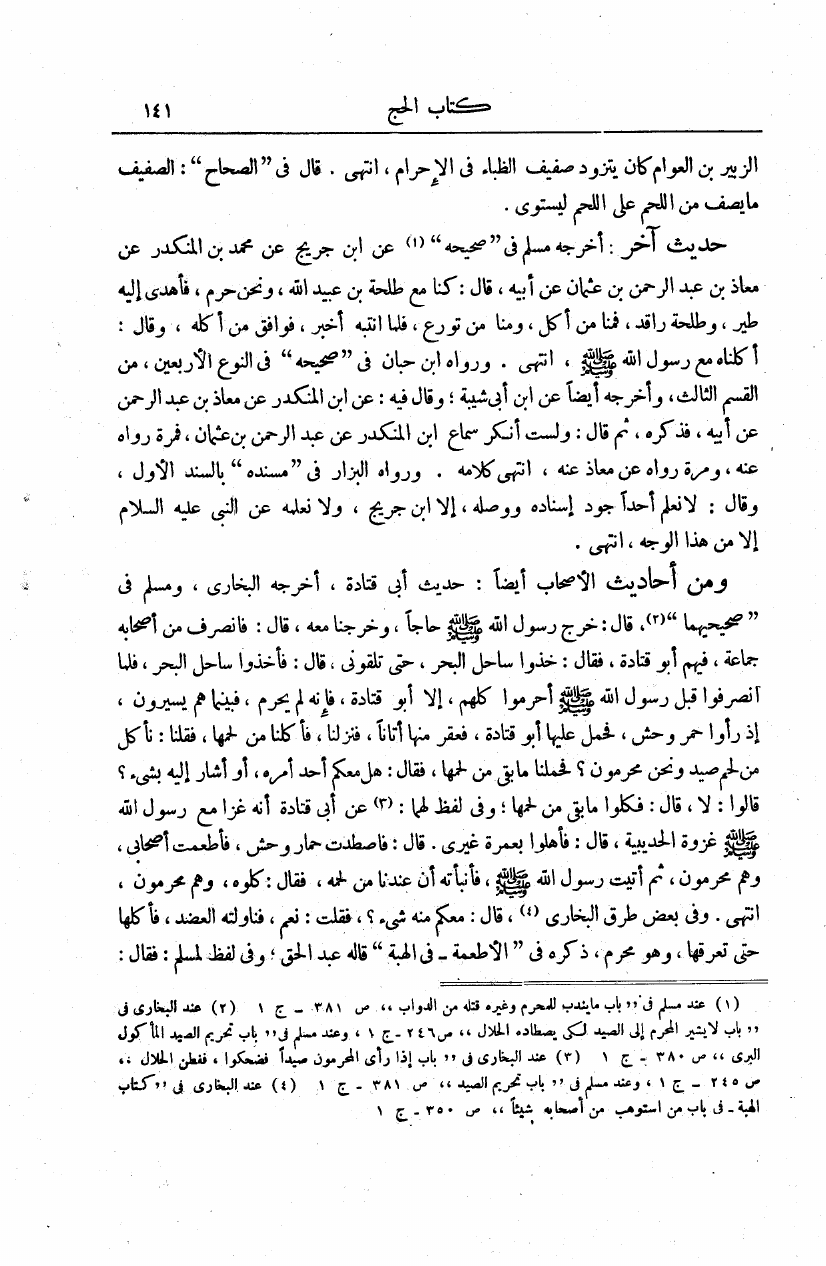 كتاب الحج ١٤١
الزبير بن العوام كان يتزود صفيف الظباء فى الإحرام ، انتهى . قال فى ”الصحاح“ : الصفيف
مايصف من اللحم على اللحم ليستوى .
حديث آخر : أخرجه مسلم فى ”صحيحه“ (١) عن ابن جريج عن محمد بن المنكدر عن
معاذ بن عبد الرحمن بن عثمان عن أبيه ، قال : كنا مع طلحة بن عبيد الله ، ونحن حرم ، فأهدى إليه
طير ، وطلحة راقد ، فمنا من أكل ، ومنا من تورع ، فلما انتبه أخبر ، فوافق من أكله ، وقال :
أكلناه مع رسول الله ﷺ ، انتهى . ورواه ابن حبان فى ”صحيحه“ فى النوع الأربعين ، من
القسم الثالث ، وأخرجه أيضاً عن ابن أبى شيبة ؛ وقال فيه : عن ابن المنكدر عن معاذ بن عبد الرحمن
عن أبيه ، فذكره ، ثم قال : ولست أنكر سماع ابن المنكدر عن عبد الرحمن بن عثمان ، فمرة رواه
عنه ، ومرة رواه عن معاذ عنه ، انتهى كلامه . ورواه البزار فى ”مسنده“ بالسند الأول ،
وقال : لانعلم أحداً جود إسناده ووصله ، إلا ابن جريج ، ولا نعلمه عن النبى عليه السلام
إلا من هذا الوجه ، انتهى .
ومن أحاديث الأصحاب أيضاً : حديث أبى قتادة ، أخرجه البخارى ، ومسلم فى
”صحيحيهما“ (٢) ، قال : خرج رسول الله ﷺ حاجاً ، وخرجنا معه ، قال : فانصرف من أصحابه
جماعة ، فيهم أبو قتادة ، فقال : خذوا ساحل البحر ، حتى تلقونى ، قال : فأخذوا ساحل البحر ، فلما
انصرفوا قبل رسول الله ﷺ أحرموا كلهم ، إلا أبو قتادة ، فإنه لم يحرم ، فبينما هم يسيرون ،
إذ رأوا حمر وحش ، فحمل عليها أبو قتادة ، فعقر منها أتاناً ، فنزلنا ، فأكلنا من لحمها ، فقلنا : نأكل
من لحم صيد ونحن محرمون ؟ فحملنا مابقى من لحمها ، فقال : هل معكم أحد أمره ، أو أشار إليه بشىء ؟
قالوا : لا ، قال : فكلوا مابقى من لحمها ؛ وفى لفظ لهما : (٣) عن أبى قتادة أنه غزا مع رسول الله
ﷺ غزوة الحديبية ، قال : فأهلوا بعمرة غيرى . قال : فاصطدت حمار وحش ، فأطعمت أصحابى ،
وهم محرمون ، ثم أتيت رسول الله ﷺ ، فأنبأته أن عندنا من لحمه ، فقال : كلوه ، وهم محرمون ،
انتهى . وفى بعض طرق البخارى (٤) ، قال : معكم منه شىء ؟ ، فقلت : نعم ، فناولته العضد ، فأكلها
حتى تعرقها ، وهو محرم ، ذكره فى ”الأطعمة - فى الهبة“ قاله عبد الحق ؛ وفى لفظ لمسلم : فقال :
(١) عند مسلم فى ,, باب مايندب للمحرم وغيره قتله من الدواب ،، ص ٣٨١ - ج ١ (٢) عند البخارى فى
,, باب لايشير المحرم إلى الصيد لكى يصطاده الحلال ،، ص ٢٤٦ - ج ١ ، وعند مسلم فى ,, باب تحريم الصيد المأكول
البرى ،، ص ٣٨٠ - ج ١ (٣) عند البخارى فى ,, باب إذا رأى المحرمون صيداً فضحكوا ، ففطن الحلال ،،
ص ٢٤٥ - ج ١ ، وعند مسلم فى ,, باب تحريم الصيد ،، ص ٣٨١ - ج ١ (٤) عند البخارى فى ,, كتاب
الهبة - فى باب من استوهب من أصحابه شيئاً ،، ص ٣٥٠ - ج ١